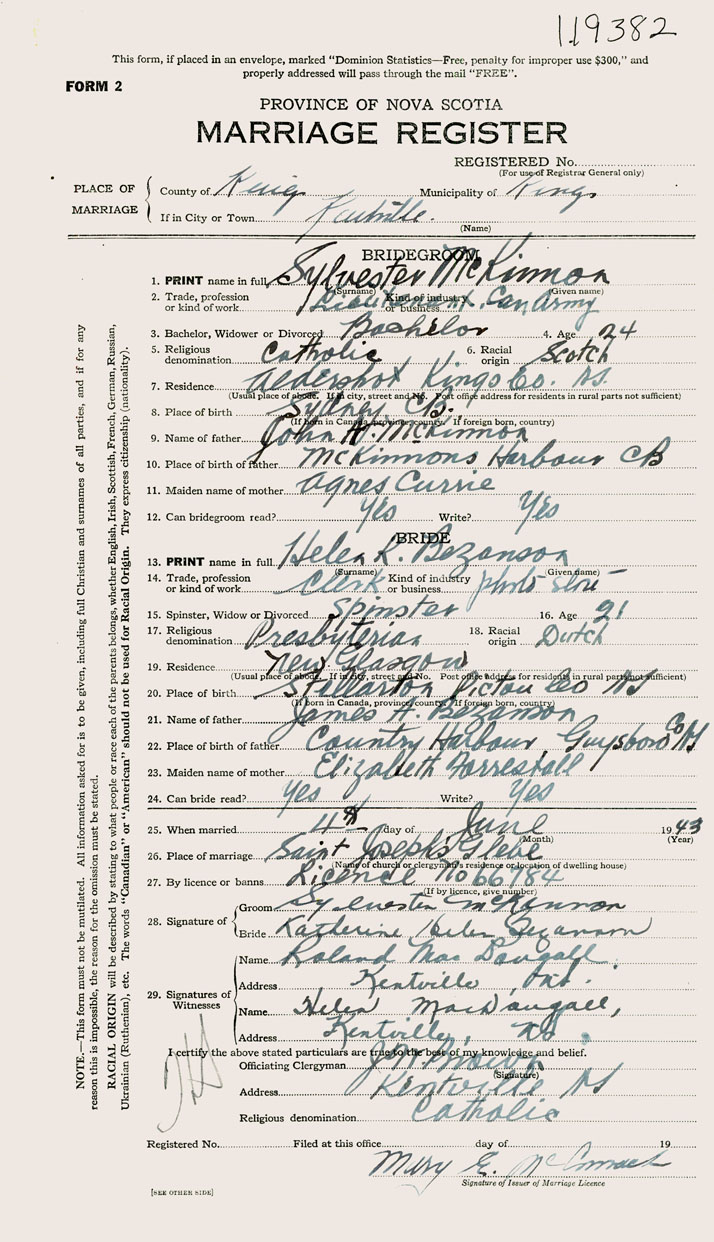 119382
This form, if placed in an envelope, marked "Dominion Statistics—Free, penalty for improper use $300," and
properly addressed will pass through the mail "FREE".
FORM 2
PROVINCE OF NOVA SCOTIA
MARRIAGE REGISTER
REGISTERED No.
(For use of Registrar General only)
PLACE OF MARRIAGE
County of Kings Municipality of Kings
If in City or Town Kentville.
(Name)
BRIDEGROOM
1. PRINT name in full Sylvester McKinnon
(Surname) (Given name)
2. Trade, profession or kind of work Lieutenant. Kind of industry or business Can. Army
3. Bachelor, Widower or Divorced Bachelor 4. Age 24
5. Religious denomination Catholic 6. Racial origin Scotch
7. Residence Aldershot Kings Co. N.S.
(Usual place of abode. If in city, street and No. Post office address for residents in rural parts not sufficient)
8. Place of birth Sydney C.B.
(If born in Canada, province, county. If foreign born, country)
9. Name of father John H. McKinnon
10. Place of birth of father McKinnons Harbour CB
11. Maiden name of mother Agnes Currie
12. Can bridegroom read? Yes Write? Yes
BRIDE
13. PRINT name in full Helen K. Bezanson
(Surname) (Given name)
14. Trade, profession or kind of work Clerk Kind of industry or business photo store
15. Spinster, Widow or Divorced Spinster 16. Age 21
17. Religious denomination Presbyterian 18. Racial origin Dutch
19. Residence New Glasgow
(Usual place of abode. If in city, street and No. Post office address for residents in rural parts not sufficient)
20. Place of birth Stellarton Pictou Co NS
(If born in Canada, province, county. If foreign born, country)
21. Name of father James H. Bezanson
22. Place of birth of father Country Harbour, Guysboro Co NS
23. Maiden name of mother Elizabeth Forrestall
24. Can bride read? Yes Write? Yes
25. When married 4th day of June 1943
(Month) (Year)
26. Place of marriage Saint Joseph's Glebe
(Name of church or clergyman's residence or location of dwelling house)
27. By licence or banns Licence No 66184
(If by licence, give number)
28. Signature of
Groom Sylvester McKinnon
Bride Katherine Helen Bezanson
29. Signatures of Witnesses
Name Roland MacDougall.
Address Kentville,
Name Helen MacDougall,
Address Kentville, N.S.
I certify the above stated particulars are true to the best of my knowledge and belief.
Officiating Clergyman
(Signature)
Address Kentville NS
Religious denomination Catholic
Registered No. Filed at this office day of 19
Mary E. McCormack
Signature of Issuer of Marriage Licence
[SEE OTHER SIDE]
NOTE.—This form must not be mutilated. All information asked for is to be given, including full Christian and surnames of all parties, and if for any
reason this is impossible, the reason for the omission must be stated.
RACIAL ORIGIN will be described by stating to what people or race each of the parents belongs, whether English, Irish, Scottish, French, German, Russian,
Ukrainian (Ruthenian), etc. The words "Canadian" or "American" should not be used for Racial Origin. They express citizenship (nationality).